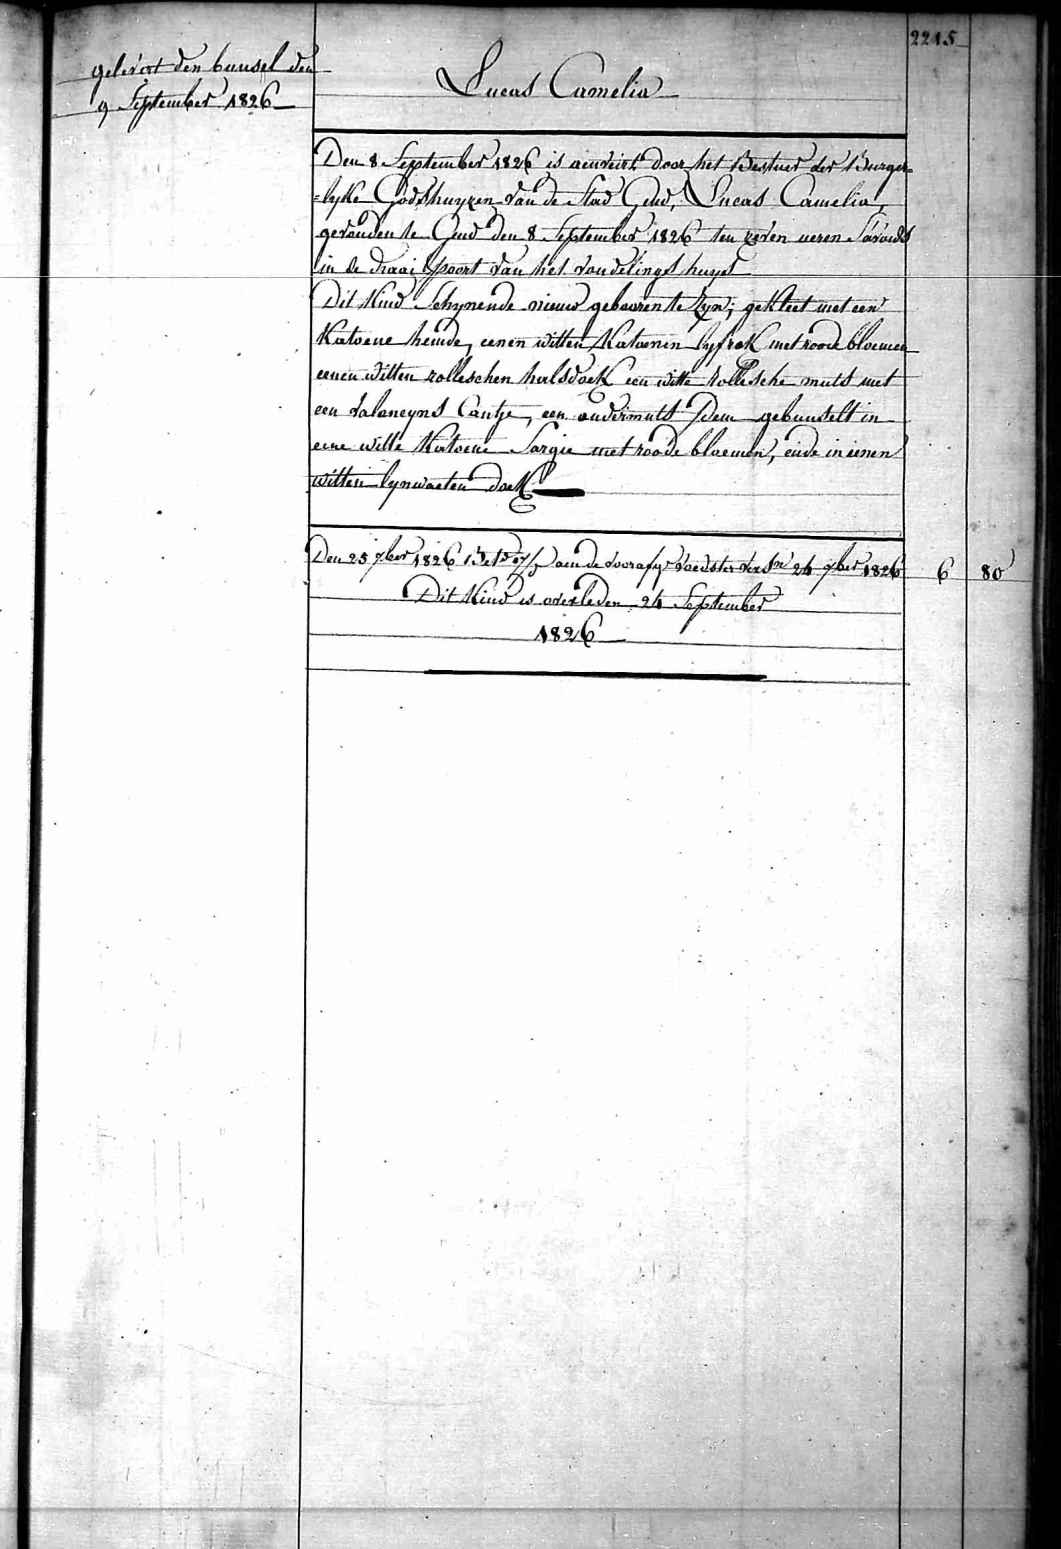 2215
gelevert den bunsel den
9 September 1826
Lucas Camelia
Den 8 September 1826 is aenveirt door het Bestuer der Burger=
=lyke Godshuyzen van de Stad Gend, Lucas Camelia,
gevonden te Gend den 8 September 1826 ten zeven ueren S'avonds
in de draai poort van het vondelings huys
Dit Kind Schynende nieuw gebooren te Zyn; gekleet met een
Katoene hemde, eenen witten Katoenen lyfrok met roode bloemen
eenen witten zolleschen halsdoek een witte zollesche muts met
een valencyns Cantje, een ondermuts Idem gebunselt in
eene witte Katoene Sargie met roode bloemen, ende in eenen
witten lynwaeten doek
Den 25 7ber 1826 aen de voedster 24 7ber 1826 6 80
Dit Kind is overleden 24 September
1826